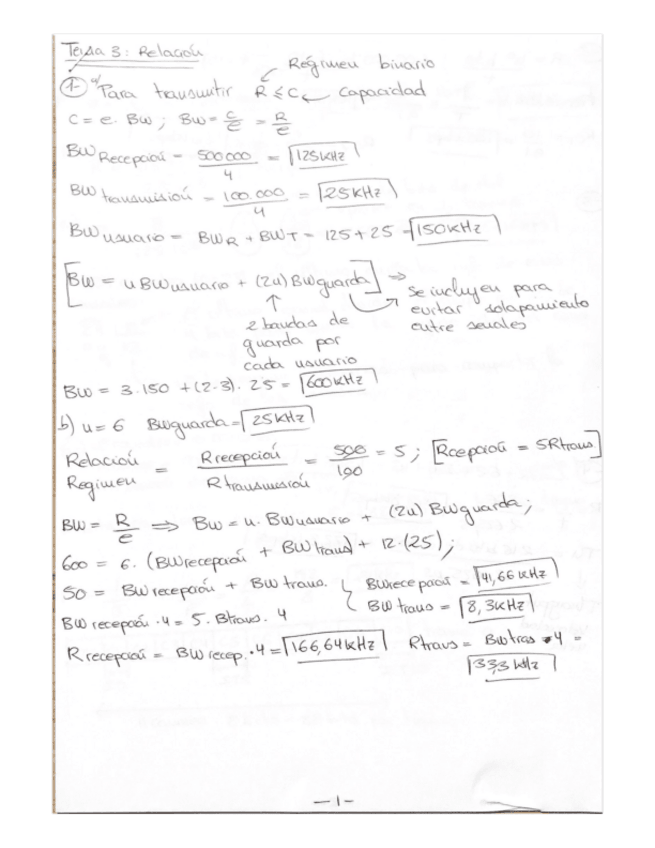 Tema 3: Relación
Régimen binario
1- a) Para transmitir R ≤ C ← capacidad
C = e · BW ; BW = C/e = R/e
BW Recepción = 500000/4 = 125 kHz
BW transmisión = 100.000/4 = 25 kHz
BW usuario = BWR + BWT = 125 + 25 = 150 kHz
[BW = u BW usuario + (2u) BW guarda] ⇒ se incluyen para evitar solapamiento entre senales
↑ 2 bandas de guarda por cada usuario
BW = 3·150 + (2·3)·25 = 600 kHz
b) u = 6 BW guarda = 25 kHz
Relación Regimen = R recepción / R transmisión = 500/100 = 5 ; [Rcepción = 5 Rtrans]
BW = R/e ⇒ BW = u · BW usuario + (2u) BW guarda ;
600 = 6 · (BW recepción + BW trans) + 12·(25) ;
50 = BW recepción + BW trans. { BW recepción = 41,66 kHz
BW trans = 8,3 kHz
BW recepción · 4 = 5 · Btrans · 4
R recepción = BW recep. · 4 = 166,64 kHz Rtrans = BW tras · 4 =
33,3 kHz
- 1 -